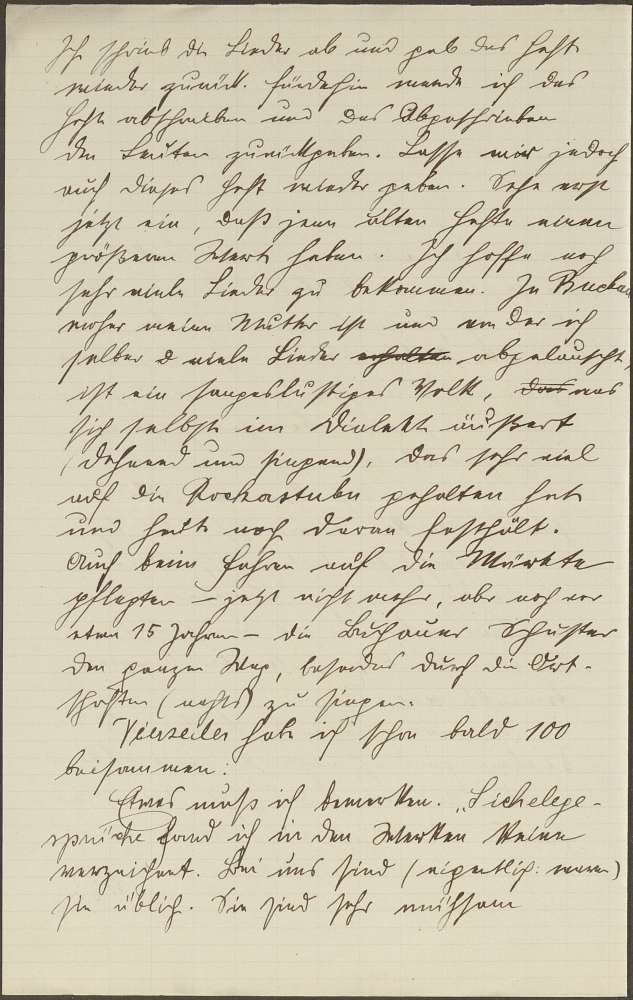 Ich schrieb die Lieder ab und gab das Heft
wieder zurück. Fürderhin werde ich das
Heft abschreiben und das Abgeschriebene
den Leuten zurückgeben. Lasse mir jedoch
auch dieses Heft wieder geben. Sehe erst
jetzt ein, daß jene alten Hefte einen
größeren Wert haben. Ich hoffe noch
sehr viele Lieder zu bekommen. In Buchau
woher meine Mutter ist und von der ich
selber viele Lieder erhalten abgelauscht,
ist ein sangeslustiges Volk, das aus
sich selbst im Dialekt äußert
(dehnend und singend), das sehr viel
auf die Rockastubn gehalten hat
und heute noch daran festhält.
Auch beim Fahren auf die Märkte
pflegten – jetzt nicht mehr, aber noch vor
etwa 15 Jahren – die Buchauer Schuster
den ganzen Weg, besonders durch die Ort-
schaften (nachts) zu singen.
Vierzeiler habe ich schon bald 100
beisammen.
Etwas muß ich bemerken. „Sichelege-
sprüche fand ich in den Werken keine
verzeichnet. Bei uns sind (eigentlich: waren)
sie üblich. Sie sind sehr mühsam